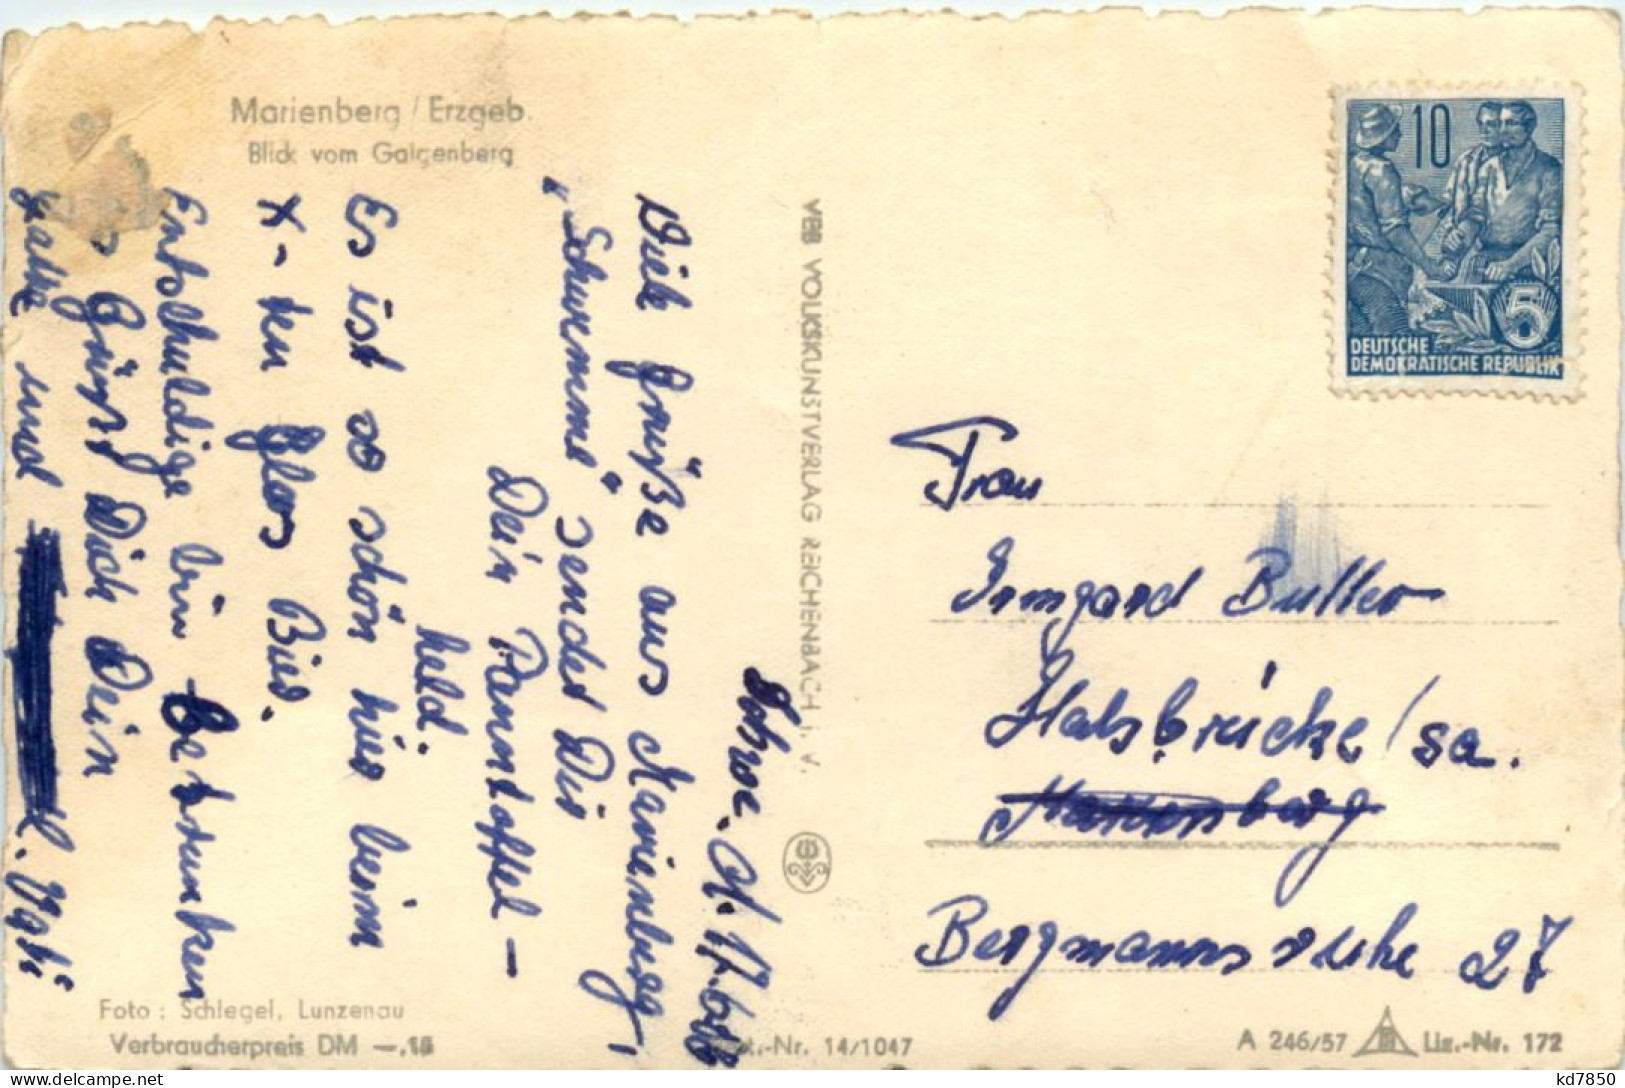 Marienberg / Erzgeb.
Blick vom Galgenberg
Zschoe. d. 17.6.
Viele Grüße aus Marienberg,
"Schwemme" sendet Dir
Dein Pannntoffel-
held.
Es ist so schön hier beim
X-ten Glas Bier.
Entschuldige bin betrunken
Es Grüßt Dich Dein
Gatte und
VEB VOLKSKUNSTVERLAG REICHENBACH i. V.
10
5
DEUTSCHE
DEMOKRATISCHE REPUBLIK
Frau
Irmgard Butter
Halsbrücke / Sa.
Marienberg
Bergmannsruhe 27
Foto: Schlegel, Lunzenau
Verbraucherpreis DM —,15
-Nr. 14/1047
A 246/57
Liz.-Nr. 172
kd7850